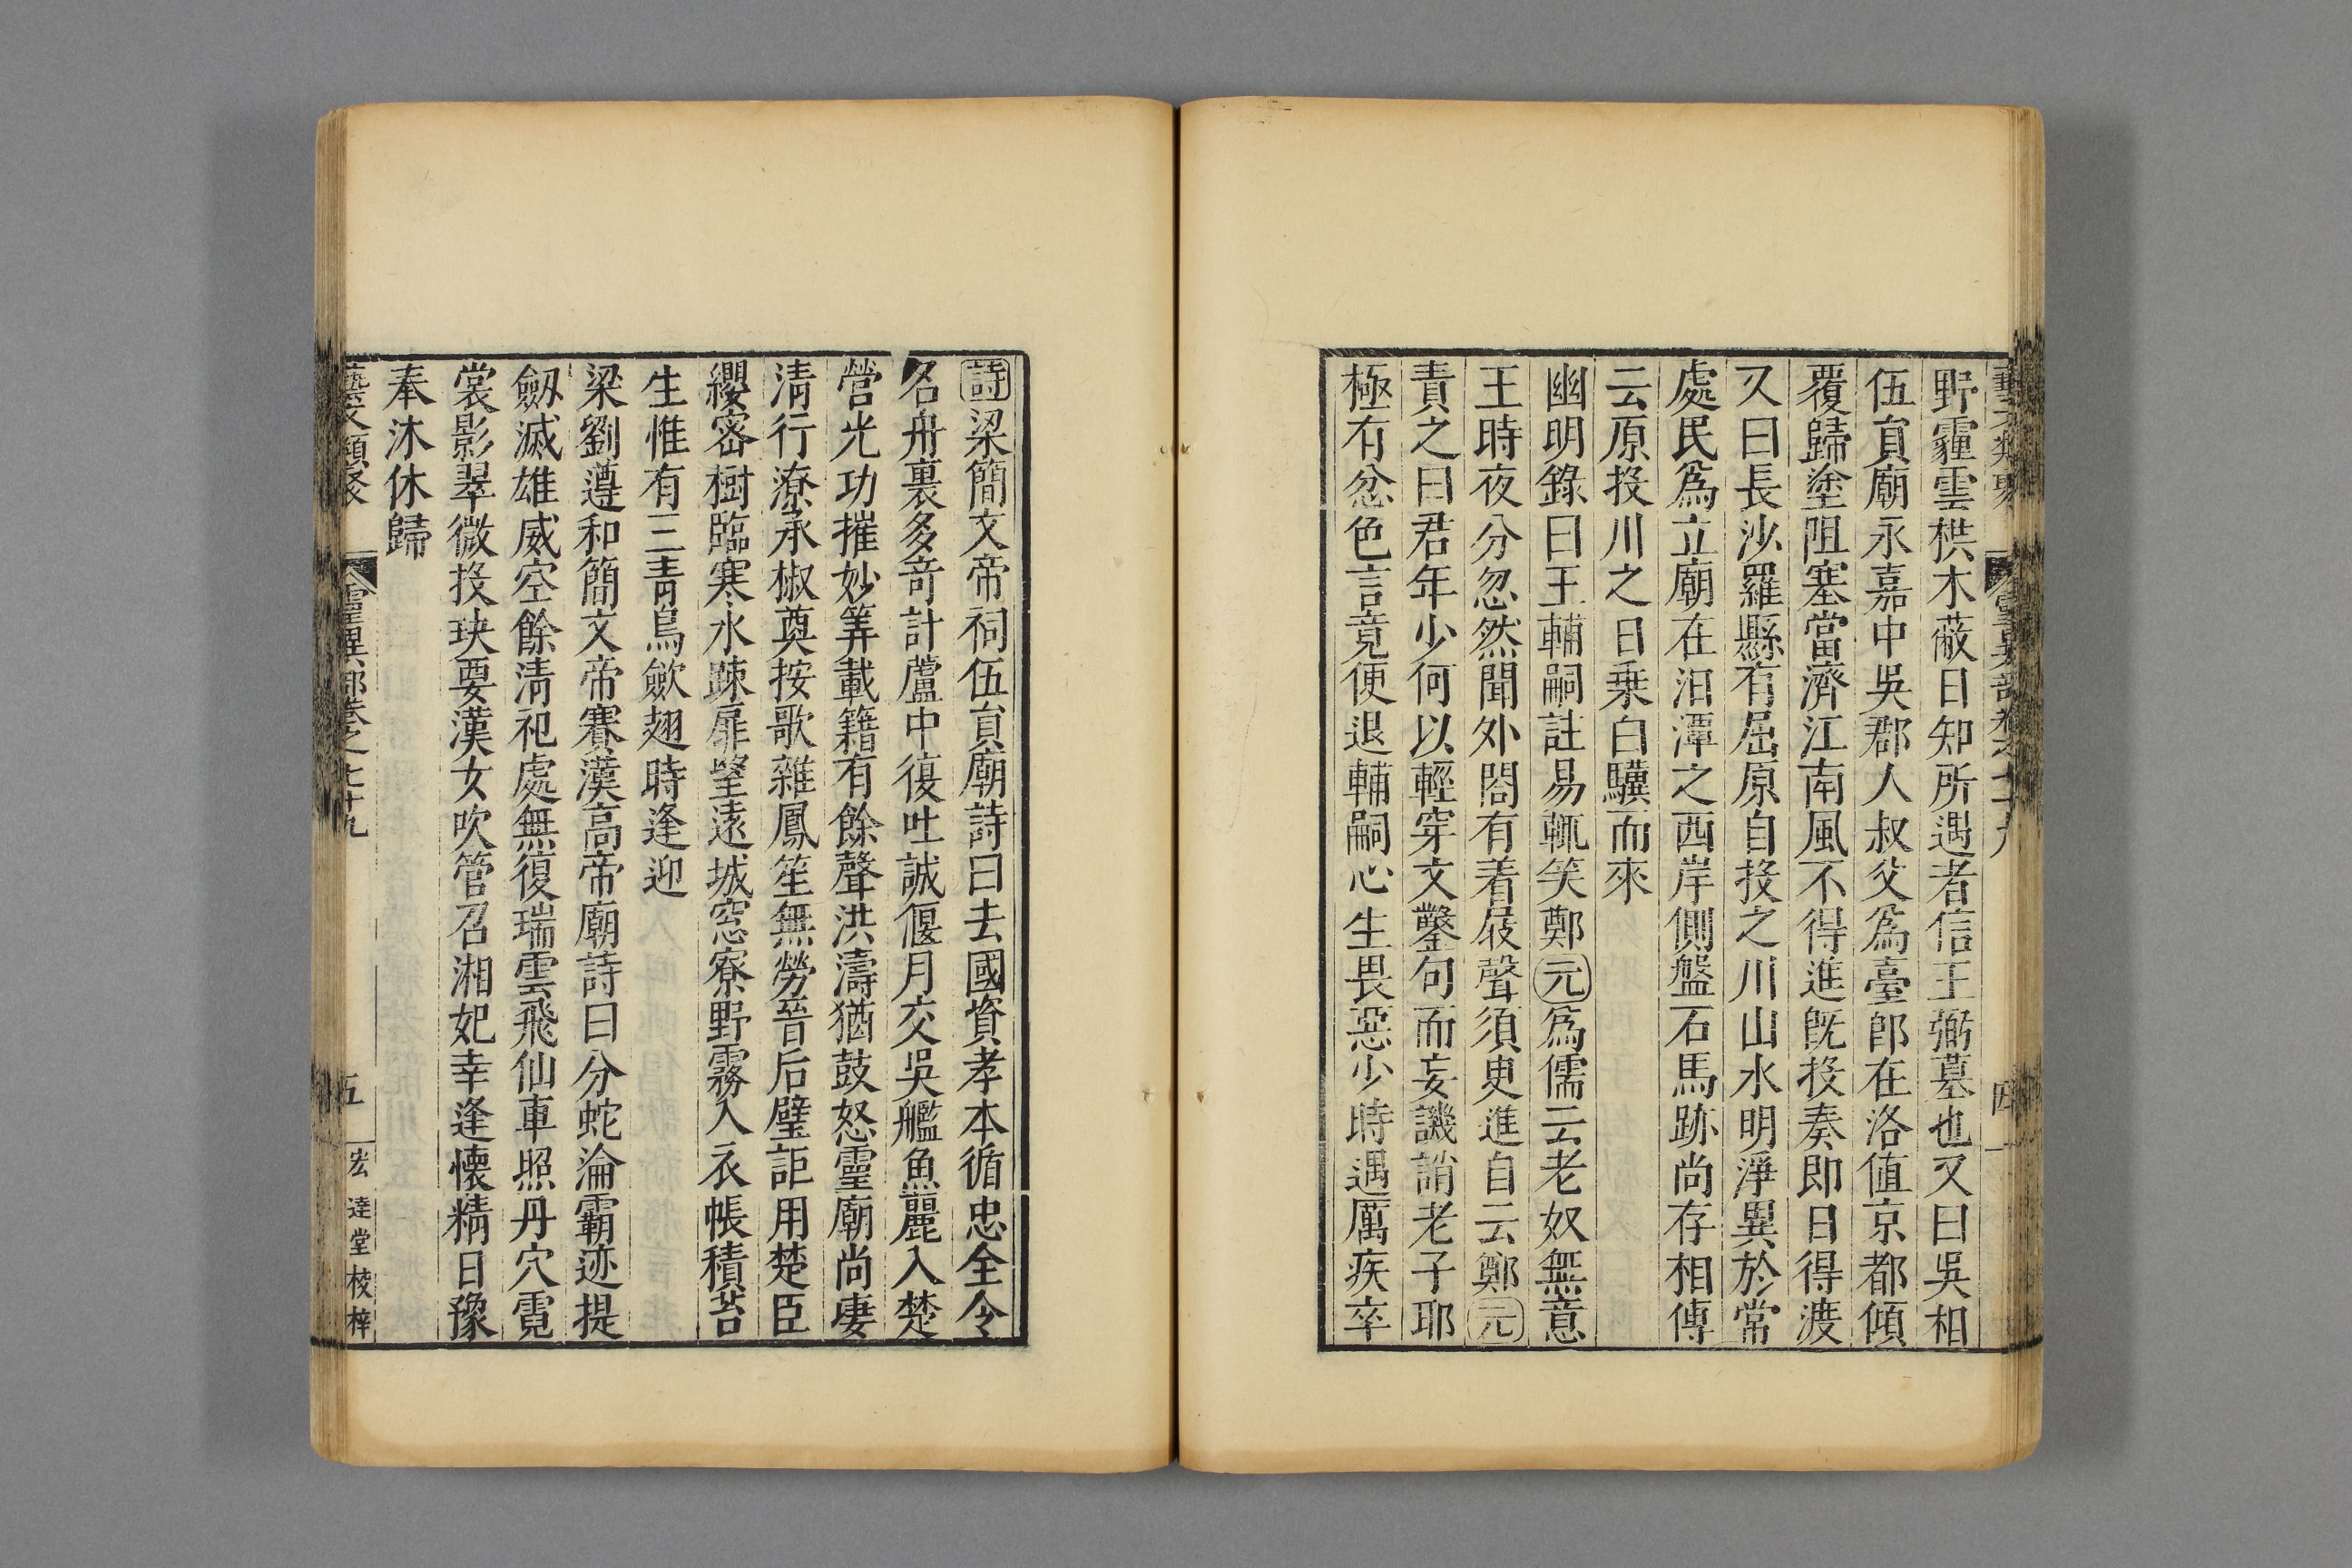 藝文類聚 靈異部卷之七十九 四
野霾雲栱木蔽日知所遇者信王弼墓也又曰吳相
伍員廟永嘉中吳郡人叔父爲臺郎在洛值京都傾
覆歸塗阻塞當濟江南風不得進旣投奏即日得渡
又曰長沙羅縣有屈原自投之川山水明淨異於常
處民爲立廟在汨潭之西岸側盤石馬跡尚存相傳
云原投川之日乗白驥而來
幽明錄曰王輔嗣註易輒笑鄭元爲儒云老奴無意
王時夜分忽然聞外閤有着屐聲須臾進自云鄭元
責之曰君年少何以輕穿文鑿句而妄譏誚老子耶
極有忿色言竟便退輔嗣心生畏惡少時遇厲疾卒
詩梁簡文帝祠伍員廟詩曰去國資孝本循忠全令
名舟裏多竒計蘆中復吐誠偃月交吳艦魚麗入楚
營光功摧妙筭載籍有餘聲洪濤猶鼓怒靈廟尚凄
清行潦承椒奠按歌雜鳳笙無勞晉后璧詎用楚臣
纓密樹臨寒水踈扉望遠城窓寮野霧入衣帳積苔
生惟有三青鳥歛翅時逢迎
梁劉遵和簡文帝賽漢高帝廟詩曰分蛇淪霸迹提
劔滅雄威空餘清祀處無復瑞雲飛仙車照丹穴霓
裳影翠微投玦要漢女吹管召湘妃幸逢懐精日豫
奉沐休歸
藝文類聚 靈異部卷之七十九 五 宏達堂校梓